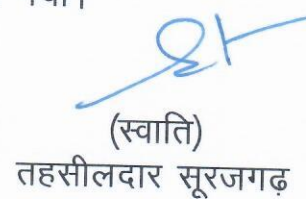 (स्वाति)
तहसीलदार सूरजगढ़